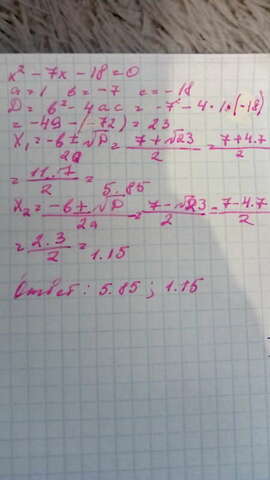 x² - 7x - 18 = 0
a = 1 b = -7 c = -18
D = b² - 4ac = -7² - 4·1·(-18)
= -49 - (-72) = 23
X₁ = -b ± √D / 2a = 7 + √23 / 2 = 7 + 4.7 / 2
= 11.7 / 2 = 5.85
X₂ = -b ± √D / 2a = 7 - √23 / 2 = 7 - 4.7 / 2
= 2.3 / 2 = 1.15
Ответ: 5.85 ; 1.15